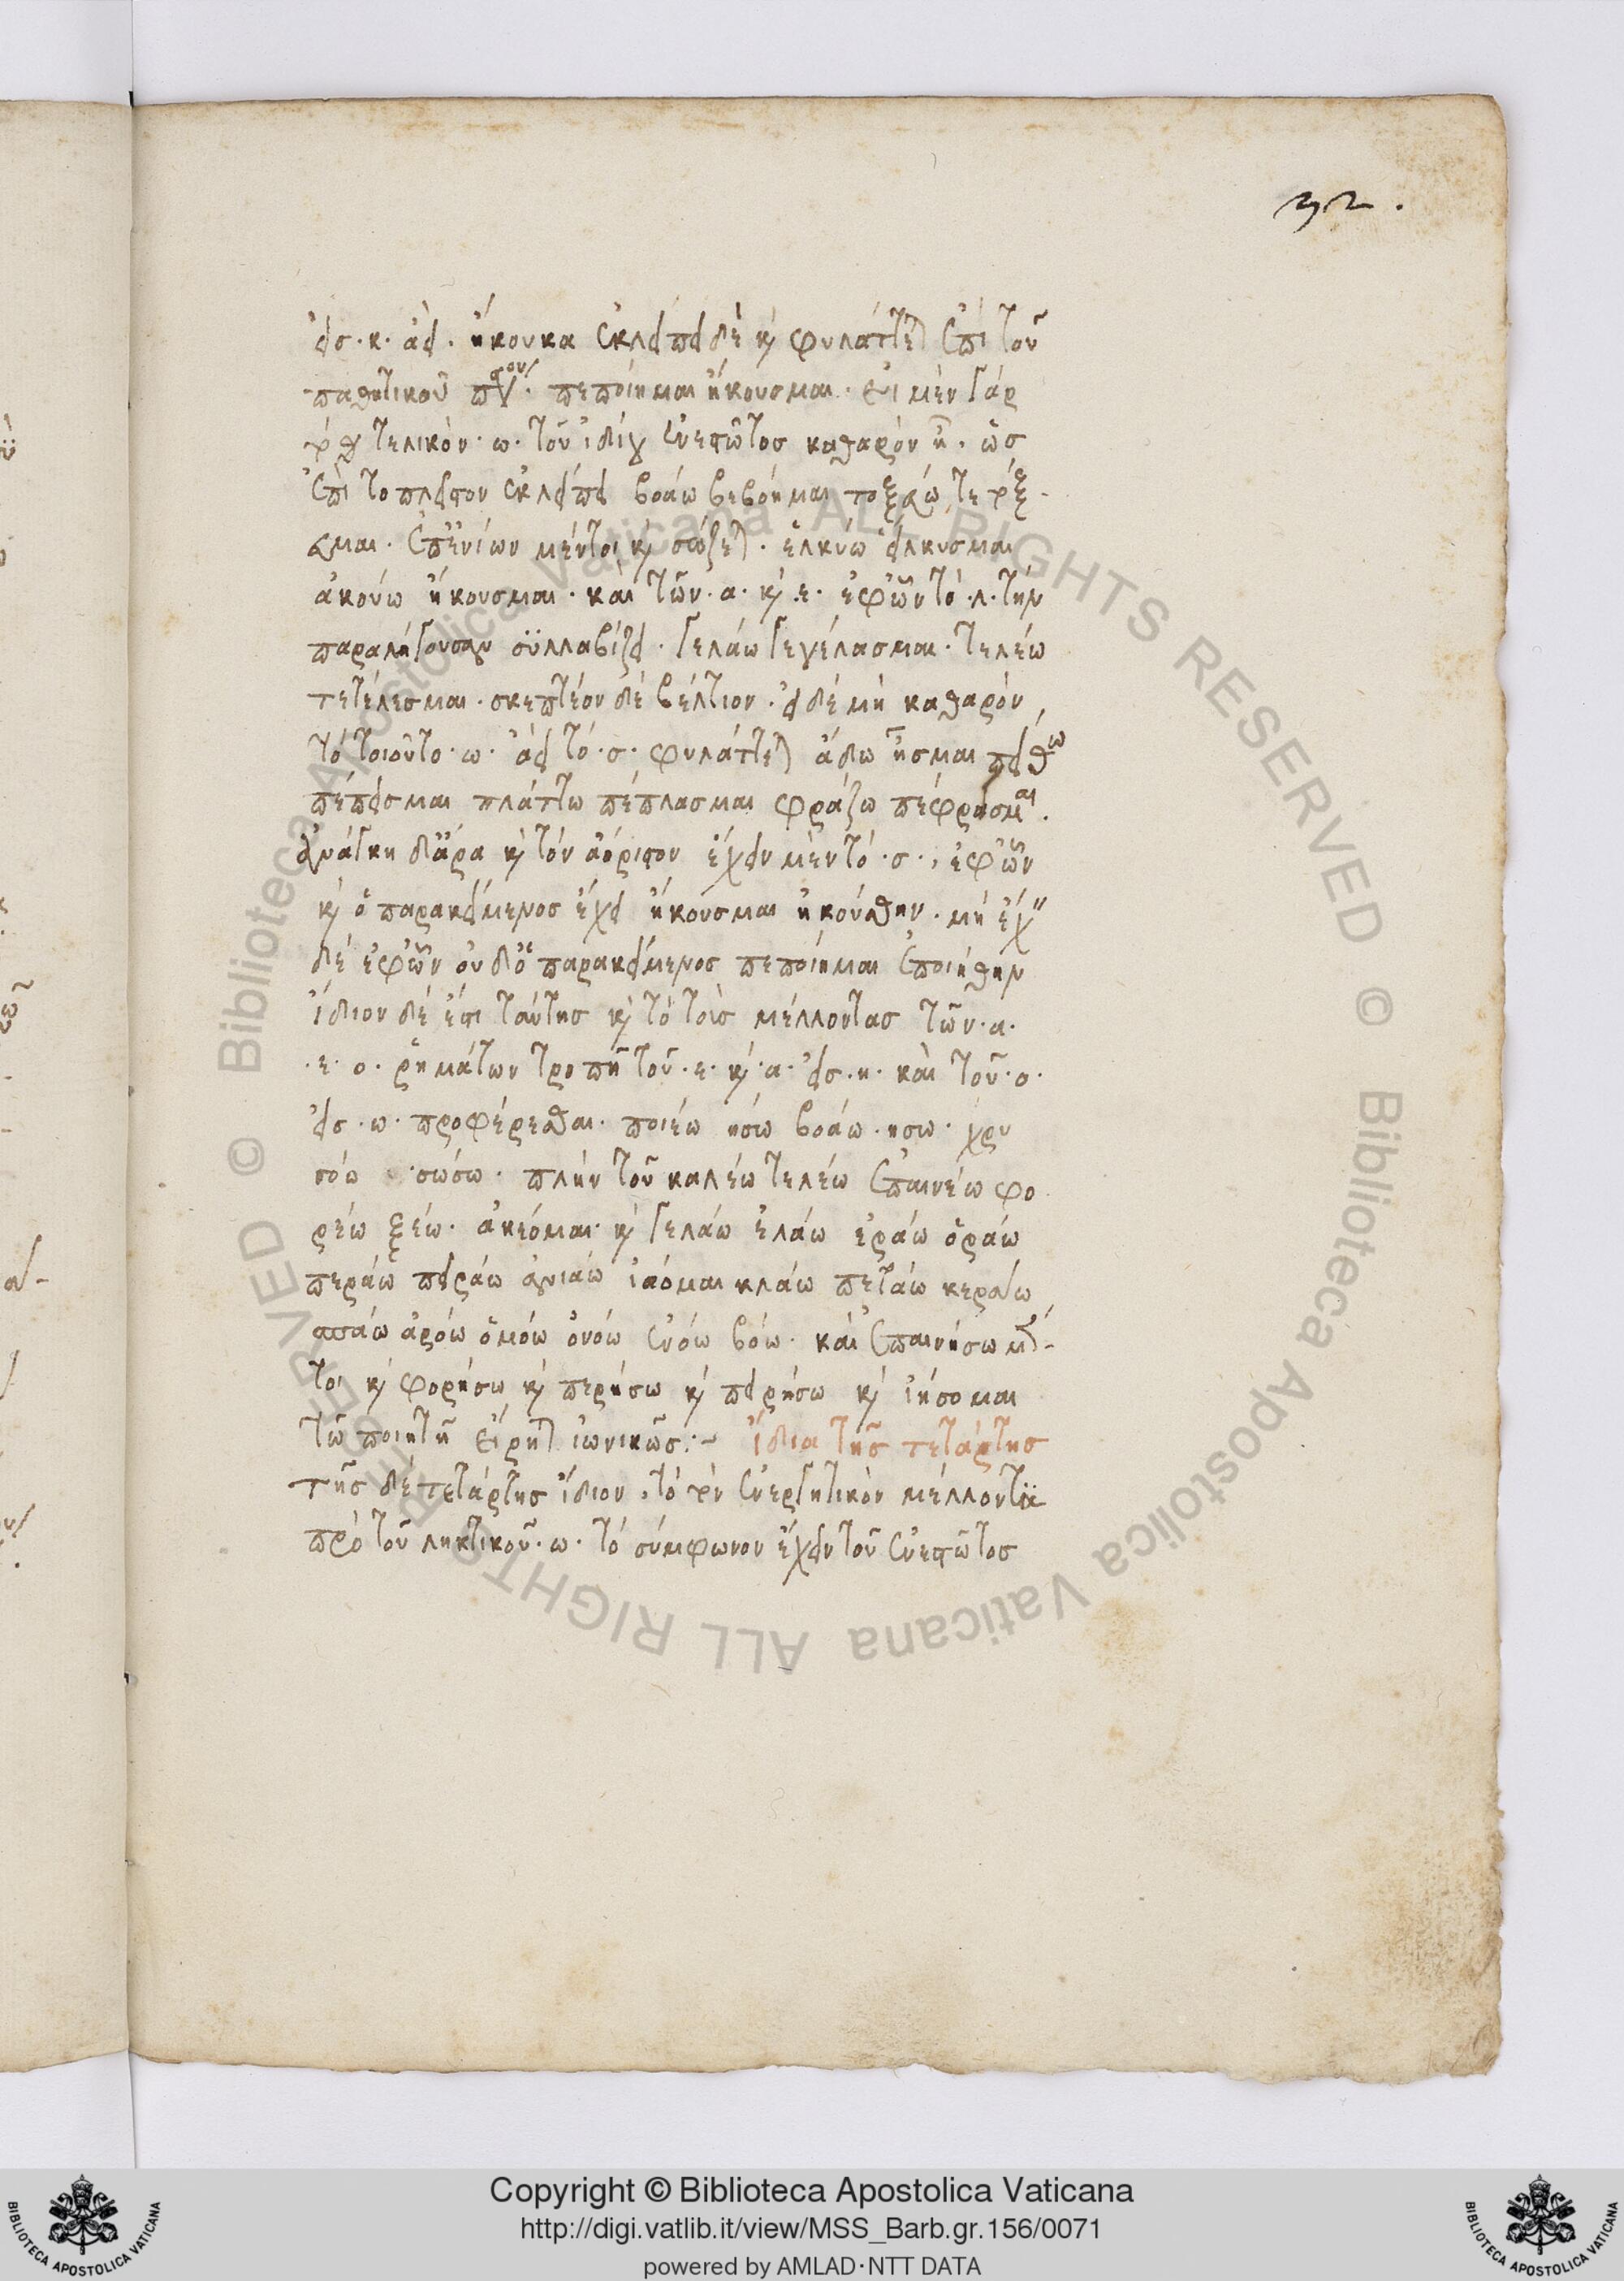 32.
εἰς. κ. ἀεὶ. ἤκουκα ἐκλείπει δὲ καὶ φυλάττεται ἐπὶ τοῦ
παθητικοῦ πεποίημαι ἤκουσμαι. εἰ μὲν γάρ
τὸ τελικὸν. ω. τοῦ ἰδίου ἐνεστῶτος καθαρὸν ᾖ. ὡς
ἐπὶ τοπλεῖστον ἐκλείπει βοάω βεβόημαι
ἐπενίων μέντοι καὶ σώζεται. ἑλκύω εἵλκυσμαι
ἀκούω ἤκουσμαι. καὶ τῶν. α. καὶ. ε. ἐφῶν τὸ. λ. τὴν
παραλήγουσαν συλλαβίζει. γελάω γεγέλασμαι. τελέω
τετέλεσμαι. σκεπτέον δὲ βέλτιον. εἰ δὲ μὴ καθαρὸν
τὸ τοιοῦτο. ω. ἀεὶ τό. σ. φυλάττεται ἄδω ἦσμαι πείθω
πέπεισμαι πλάττω πέπλασμαι φράζω πέφρασμαι.
ἀνάγκη δἄρα καὶ τόν ἀόριστον ἔχειν μὲν τό. σ., ἐφῶν
καὶ ὁ παρακείμενος ἔχει ἤκουσμαι ἠκούσθην. μὴ ἔχειν
δὲ ἐφῶν οὐδὁ παρακείμενος πεποίημαι ἐποιήθην
ἴδιον δέ ἐστι ταύτης καὶ τὸ τοὺς μέλλοντας τῶν. α.
. ε. ο. ῥημάτων τροπῇ τοῦ. ε. καὶ. α. εἰς. η. καὶ τοῦ. ο.
εἰς. ω. προφέρεσθαι. ποιέω ήσω βοάω. ησω. χρυ
σόω .σώσω. πλὴν τοῦ καλέω τελέω ἐπαινέω φο
ρέω ξέω. ἀκέομαι. καὶ γελάω ἐλάω ἐράω ὁράω
περάω πειράω ἀνιάω ἰάομαι κλάω πετάω κεράω
σπάω ἀρόω ὀμόω ὀνόω βόω. καὶ ἐπαινήσω μέν-
τοι καὶ φορήσω καὶ περήσω καὶ πειρήσω καὶ ἰήσομαι
τῷ ποιητῇ εἴρηται ἰωνικῶς:~ ἴδια τῆς τετάρτης
τῆς δὲ τετάρτης ἴδιον. τὸ τὸν ἐνεργητικὸν μέλλοντα
πρὸ τοῦ ληκτικοῦ. ω. τό σύμφωνον ἔχειν τοῦ ἐνεστῶτος
Copyright © Biblioteca Apostolica Vaticana
http://digi.vatlib.it/view/MSS_Barb.gr.156/0071
powered by AMLAD·NTT DATA
BIBLIOTECA APOSTOLICA VATICANA
BIBLIOTECA APOSTOLICA VATICANA
© Biblioteca Apostolica Vaticana ALL RIGHTS RESERVED © Biblioteca Apostolica Vaticana ALL RIGHTS RESERVED